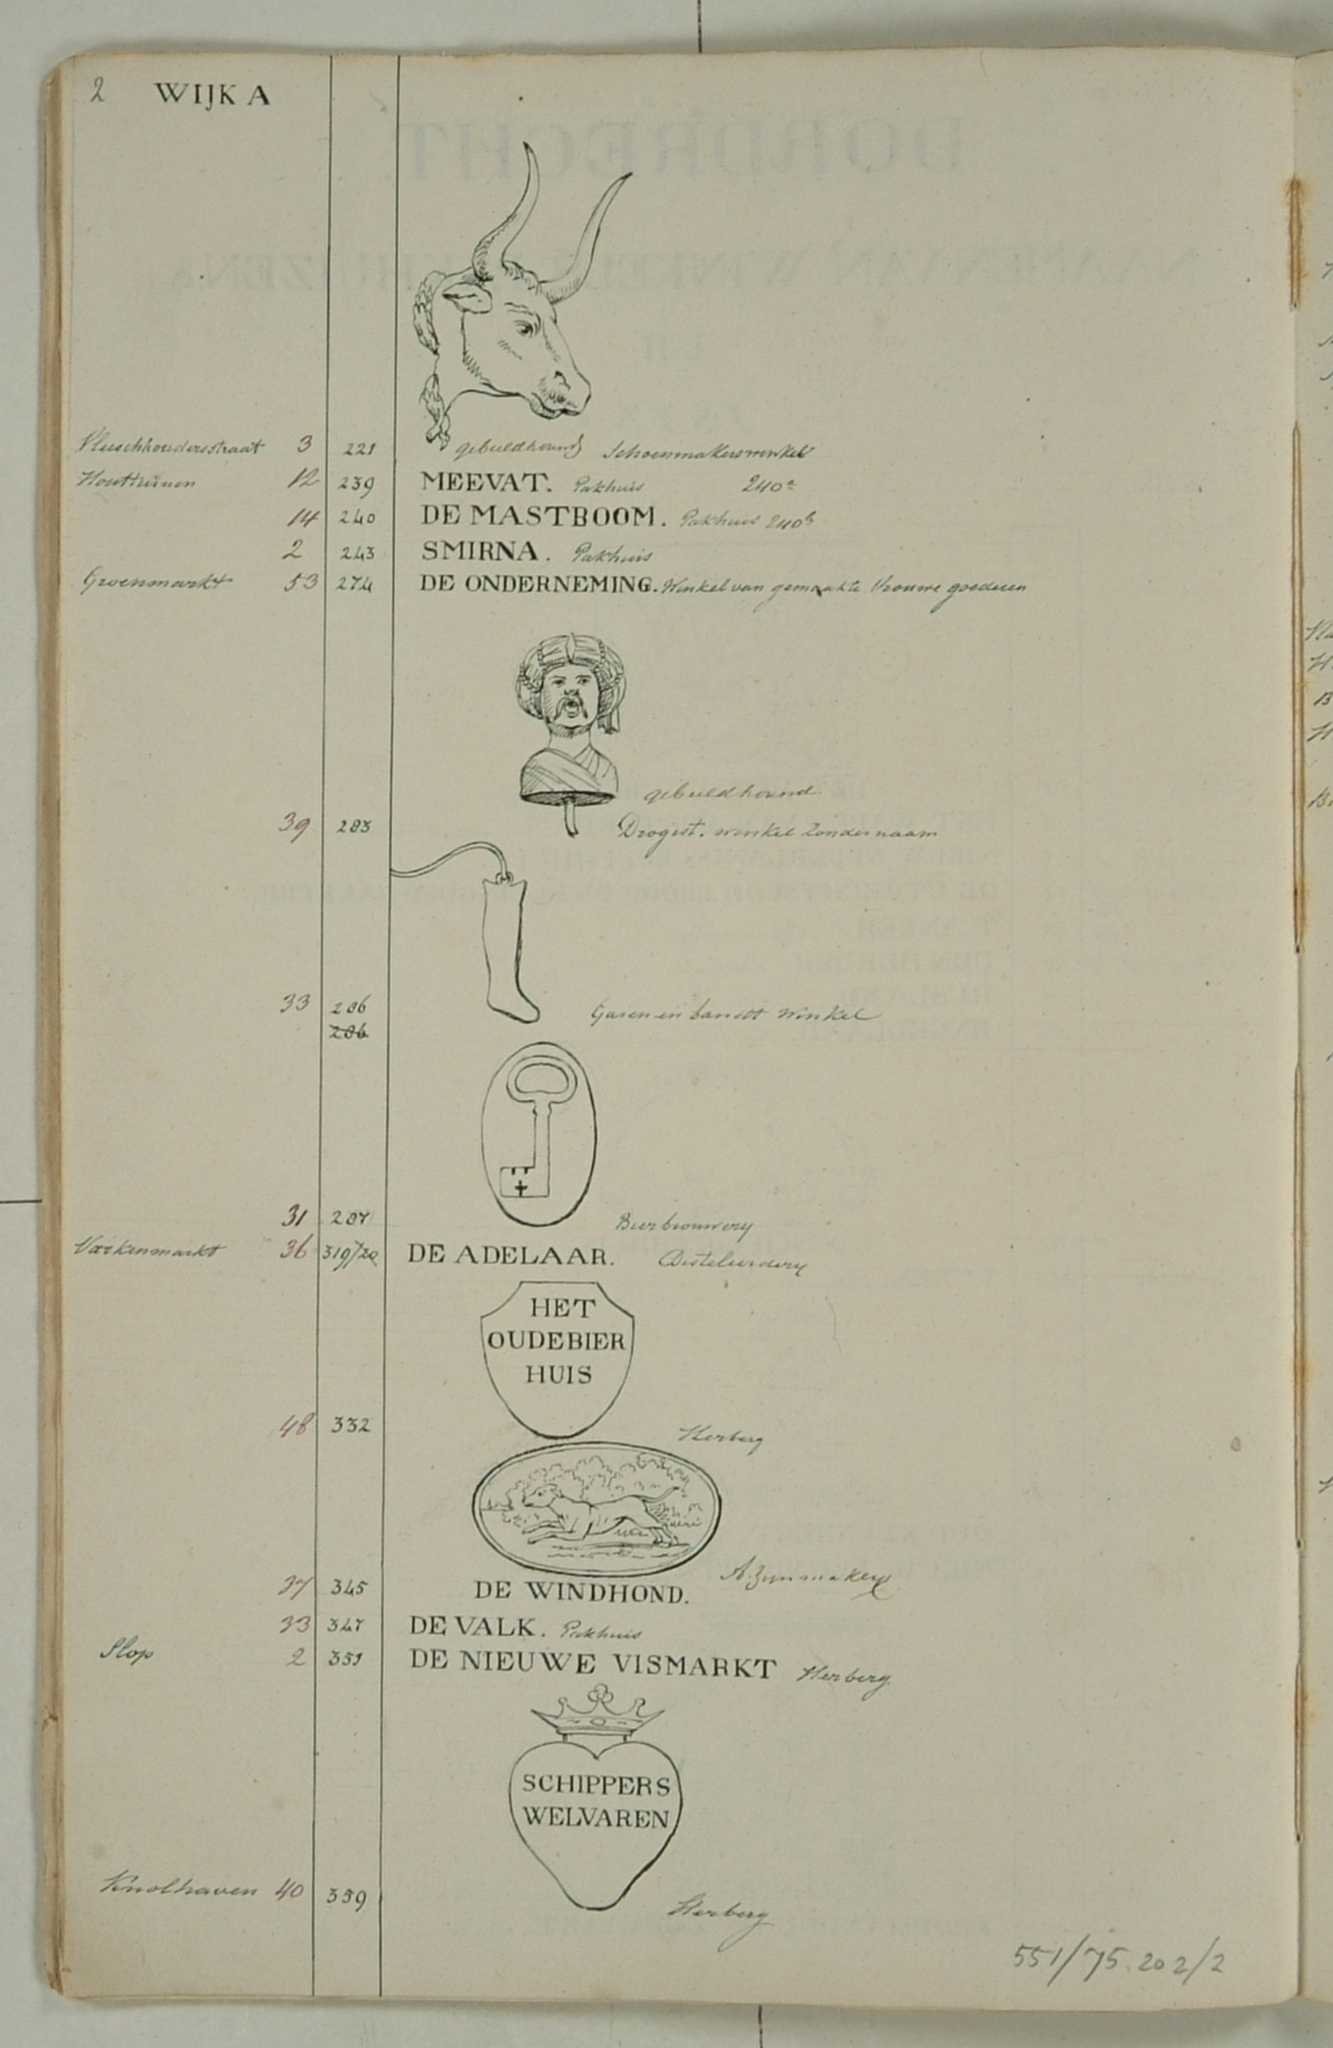 2 WIJK A
Vleeschhoudersstraat 3 221 gebeeldhouwd Schoenmakerswinkel
Houttuinen 12 239 MEEVAT. Pakhuis 240a
14 240 DE MASTBOOM. Pakhuis 240b
2 243 SMIRNA. Pakhuis
Groenmarkt 53 274 DE ONDERNEMING. Winkel van gemaakte Vrouwe goederen
gebeeldhouwd
39 283 Drogist. winkel zonder naam
33 286 Garen en band winkel
286
31 287 Bierbrouwery
Varkenmarkt 36 319/20 DE ADELAAR. Disteleerdery
HET
OUDE BIER
HUIS
48 332 Herberg
37 345 DE WINDHOND. Azynmakery
33 347 DE VALK. Pakhuis
Slop 2 351 DE NIEUWE VISMARKT Herberg
SCHIPPERS
WELVAREN
Knolhaven 40 359 Herberg
551/75.202/2